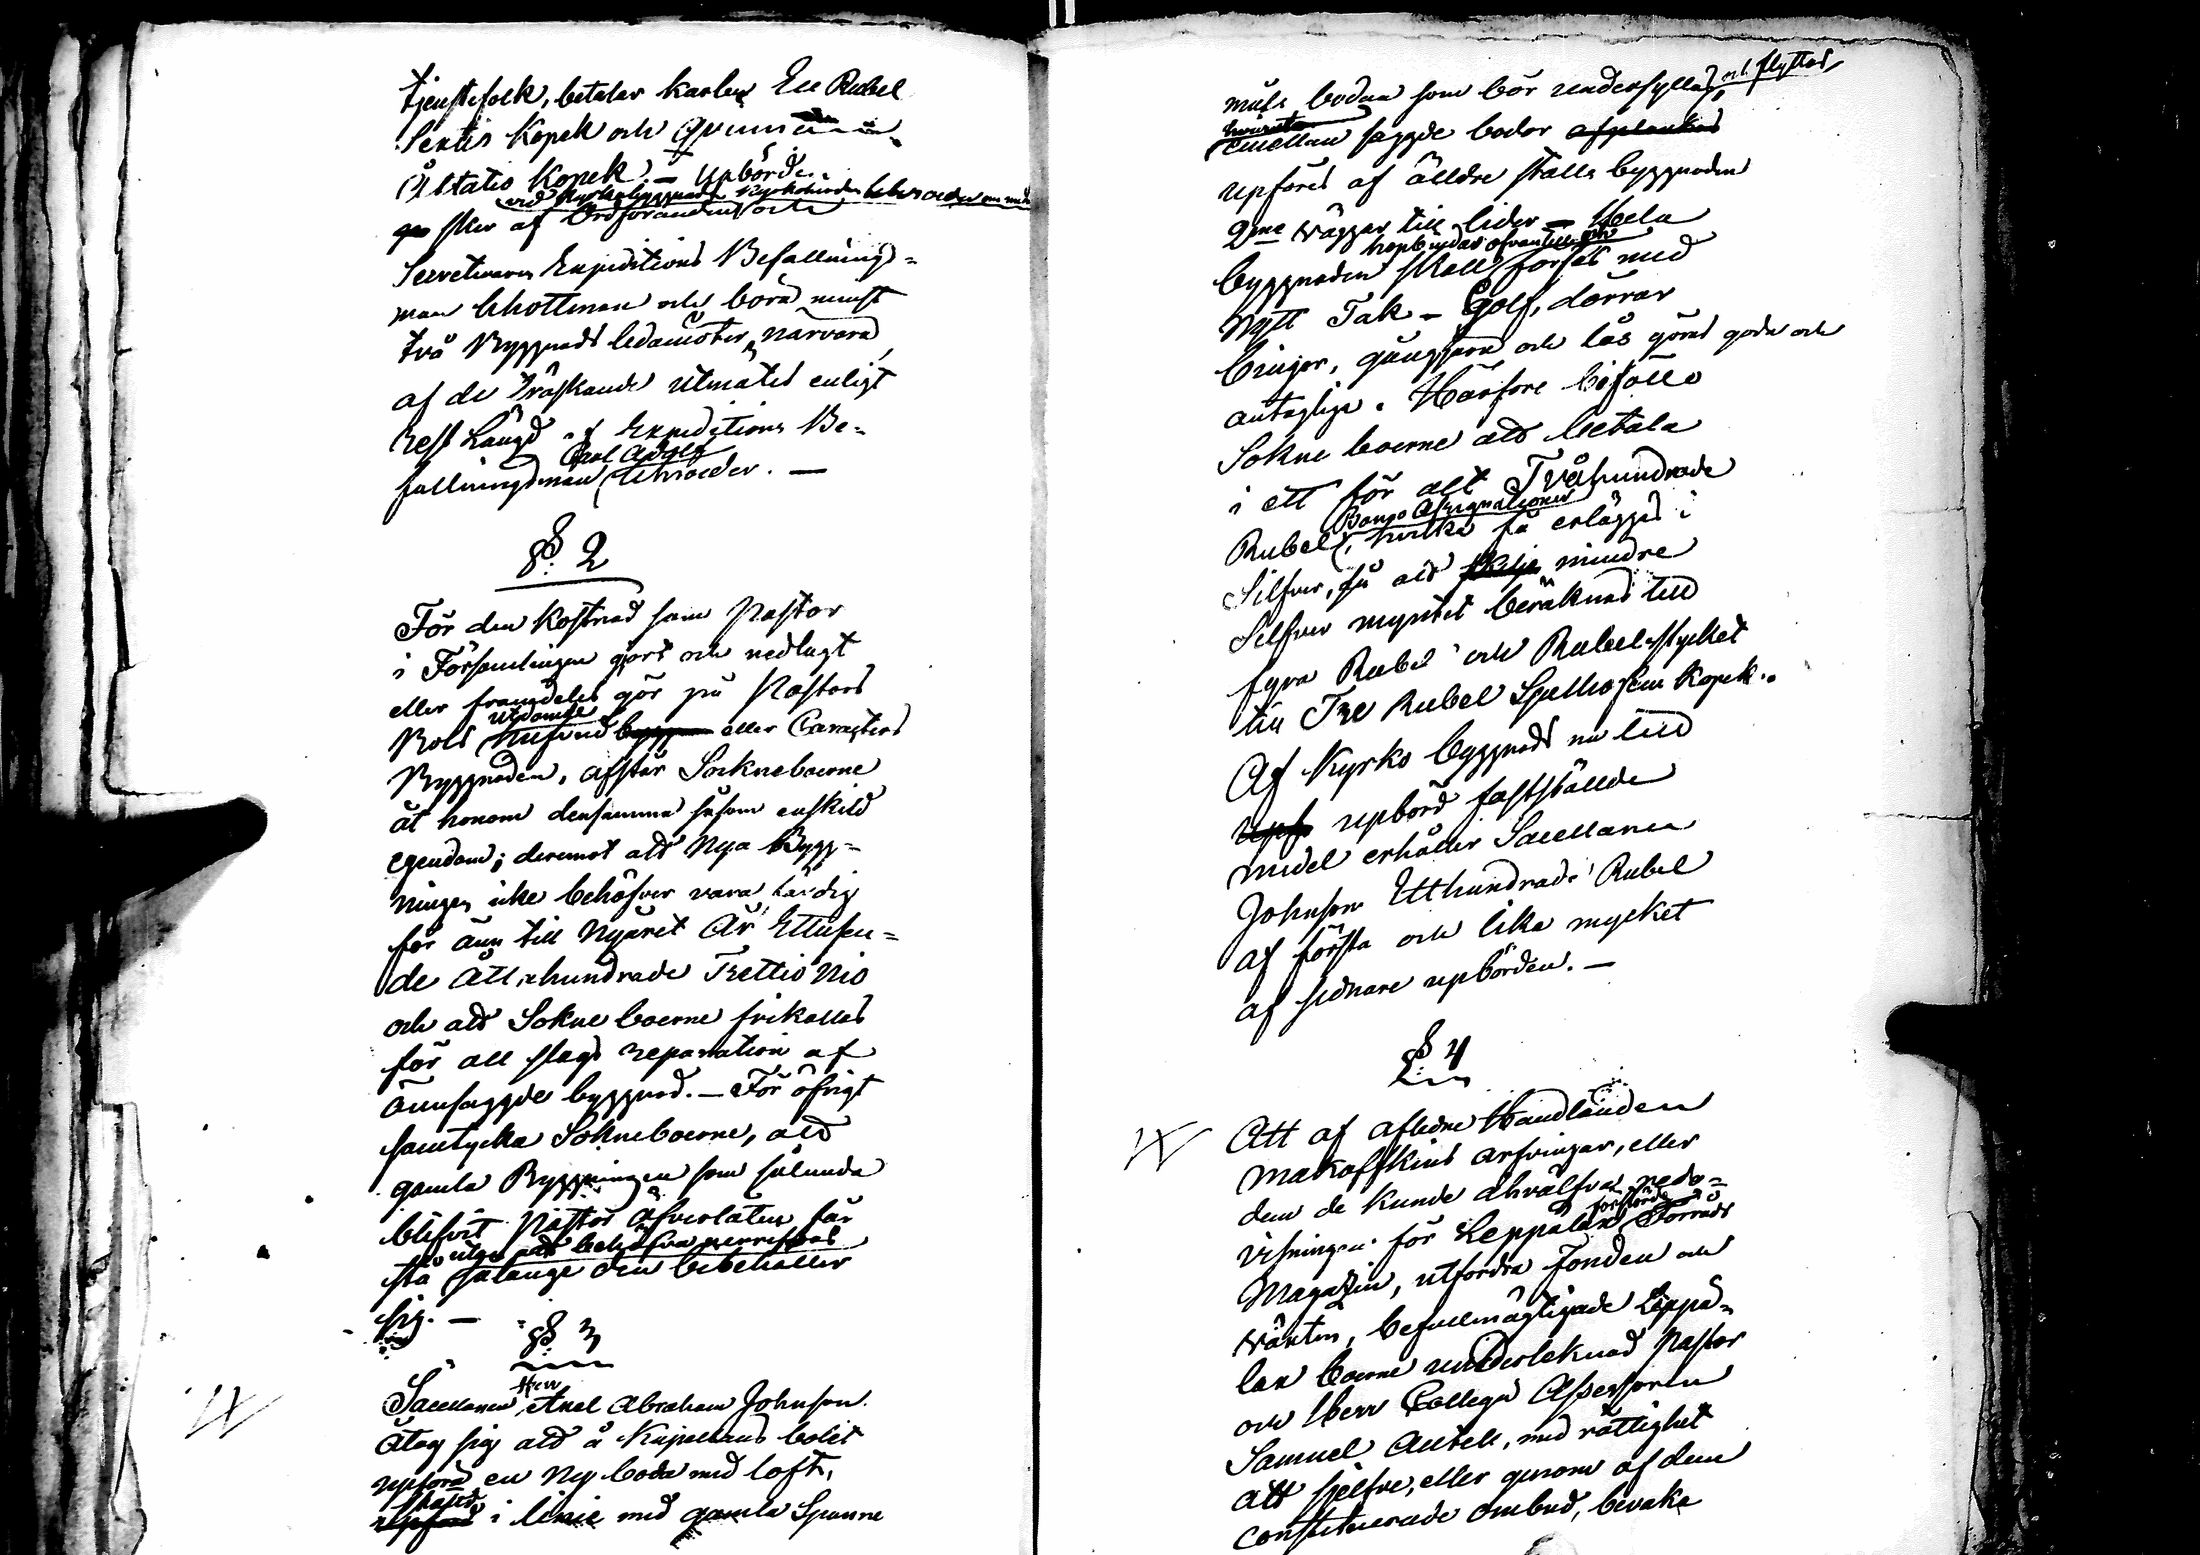 tjenstefolk, betalar karlen En Rubel
Sextio Kopek och qvinnan
Åttatio Kopek. – Upbörden
vid Kyrkobyggnad
sker af Ordföranden och
Secreteraren Expeditions Befallnings=
man Uhottman och böra minst
två Byggnads ledamöter närvara,
af de tredskande utmätes enligt
rest Längd af Expeditions Be=
Carl Adolf
fallningsman Uhroeder. –
§. 2
För den kostnad som Pastor
i Församlingen gjort och nedlagt
eller framdeles gör på Pastors
utdömde
Bols eller Caracters
Byggnaden, afstår Sockneboerne
åt honom densamma såsom enskild
egendom; deremot att Nya Bygg=
ningen icke behöfver vara färdig
för än till Nyåret År Ettusen=
de Åttahundrade Trettio Nio
och att Sokneboerne frikallas
för all slags reparation af
ännsagde byggnad. – För öfrigt
samtycka Sokneboerne, att
gamla Byggningen som sålunda
blifvit Pastor öfverlåten får
utan att behöfva
stå sålänge den bibehåller
sig. –
§. 3
Herr
Sacellanen Axel Abraham Johnson
åtog sig att å Kapellans bolet
upföra en Ny boda med loft,
i linie med gamla Spanne
måls bodan som bör undersyllas, och flyttas,
hvarjemte
emellan sagde bodor afplankas
upföres af älldre stalls byggnaden
2ne väggar till lider – Hela
hopbindas ofvantill och
byggnaden skall förses med
Nytt Tak – Golf, dörrar
bingar, gångjern och lås göras goda och
antaglige. Härföre biföllo
Sokne boerne att betala
i ett för allt Tvåhundrade
Banco Assignationer
Rubel, hvilka få erläggas i
Silfver, så att mindre
Silfver myntet beräknas till
fyra Rubel och Rubelstycket
till Tre Rubel Sjuttiofem Kopek.
Af Kyrko byggnads nu till
upbörd fastställde
medel erhåller Sacellanen
Johnson Etthundrade Rubel
af första och lika mycket
af sednare upbörden. –
§ 4
Att af aflidne Handlanden
Makoffskins arfvingar, eller
dem de kunde åhvälfva redo=
förstörde
visningen för Leppälax Förråds
Magazin, utfordra Fonden och
växten, befullmägtigade Leppä=
lax boerne undertecknad Pastor
och Herr Collegii Assessoren
Samuel Antell, med rättighet
att sjelfve, eller genom af dem
constituerade ombud, bevaka